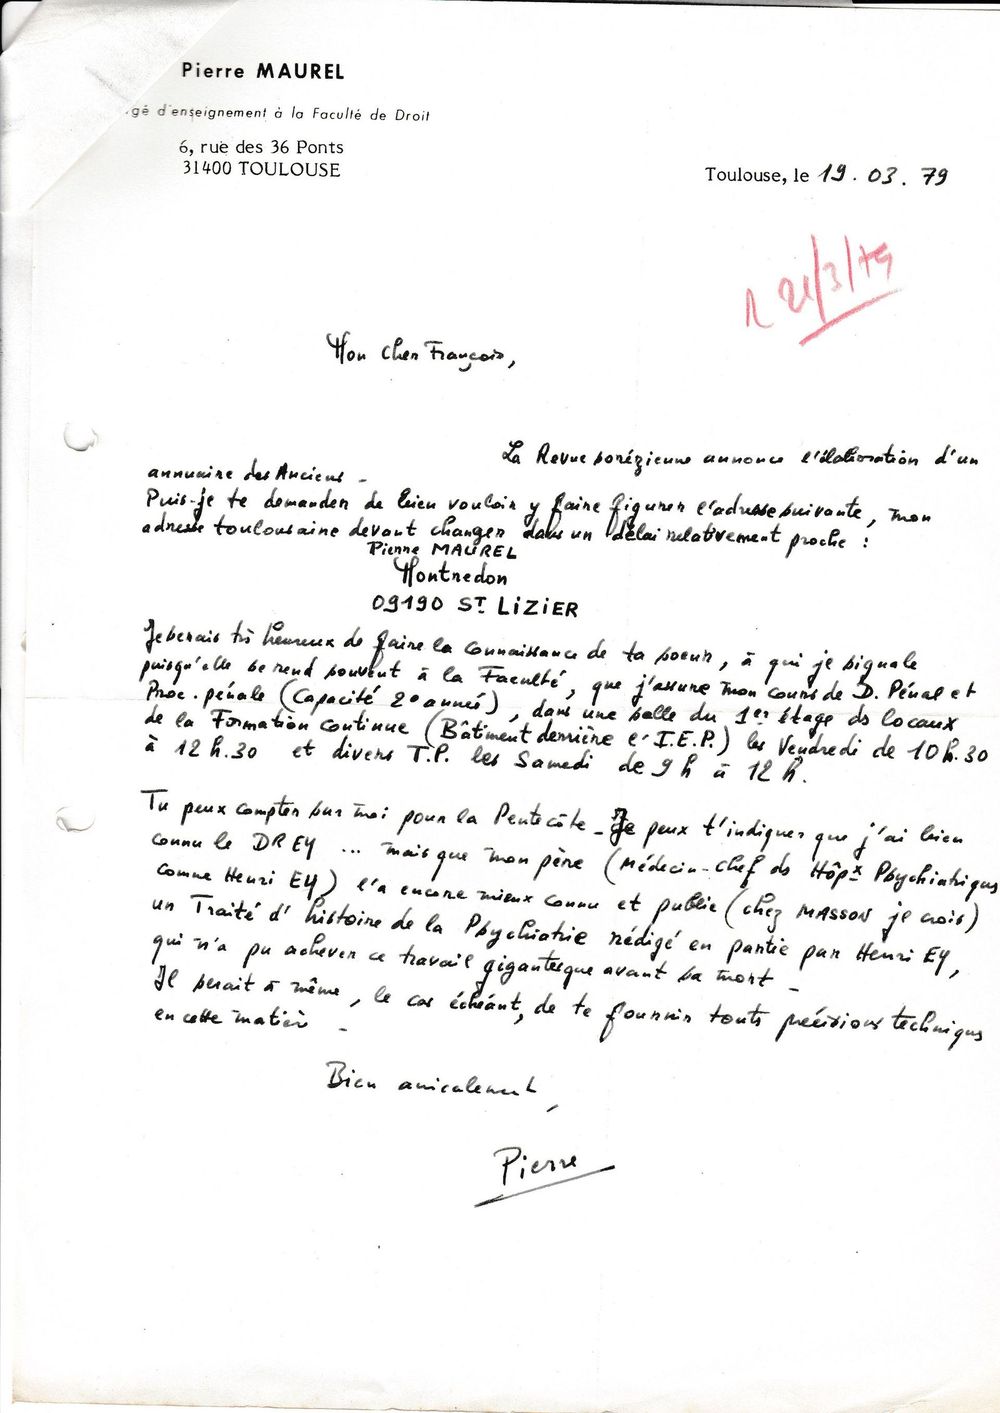 Pierre MAUREL
gé d'enseignement à la Faculté de Droit
6, rue des 36 Ponts
31400 TOULOUSE
Toulouse, le 19.03.79
R 21/3/79
Mon cher François,
La Revue sorézienne annonce l'élaboration d'un
annuaire des Anciens -
Puis-je te demander de bien vouloir y faire figurer l'adresse suivante, mon
adresse toulousaine devant changer dans un délai relativement proche :
Pierre MAUREL
Montredon
09190 ST LIZIER
Je serais très heureux de faire la connaissance de ta soeur, à qui je signale
puisqu'elle se rend souvent à la Faculté, que j'assure mon cours de D. Pénal et
Proc. pénale (Capacité 2° année), dans une salle du 1er étage ds locaux
de la Formation continue (Bâtiment derrière l'I.E.P.) les Vendredi de 10h.30
à 12h.30 et divers T.P. les Samedi de 9h à 12h.
Tu peux compter sur moi pour la Pentecôte - Je peux t'indiquer que j'ai bien
connu le DR EY ... mais que mon père (Médecin-Chef ds Hôpx Psychiatriques
comme Henri EY) l'a encore mieux connu et publie (chez MASSON je crois)
un Traité d'histoire de la Psychiatrie rédigé en partie par Henri EY,
qui n'a pu achever ce travail gigantesque avant sa mort -
Il serait à même, le cas échéant, de te fournir touts précisions techniques
en cette matière -
Bien amicalement,
Pierre